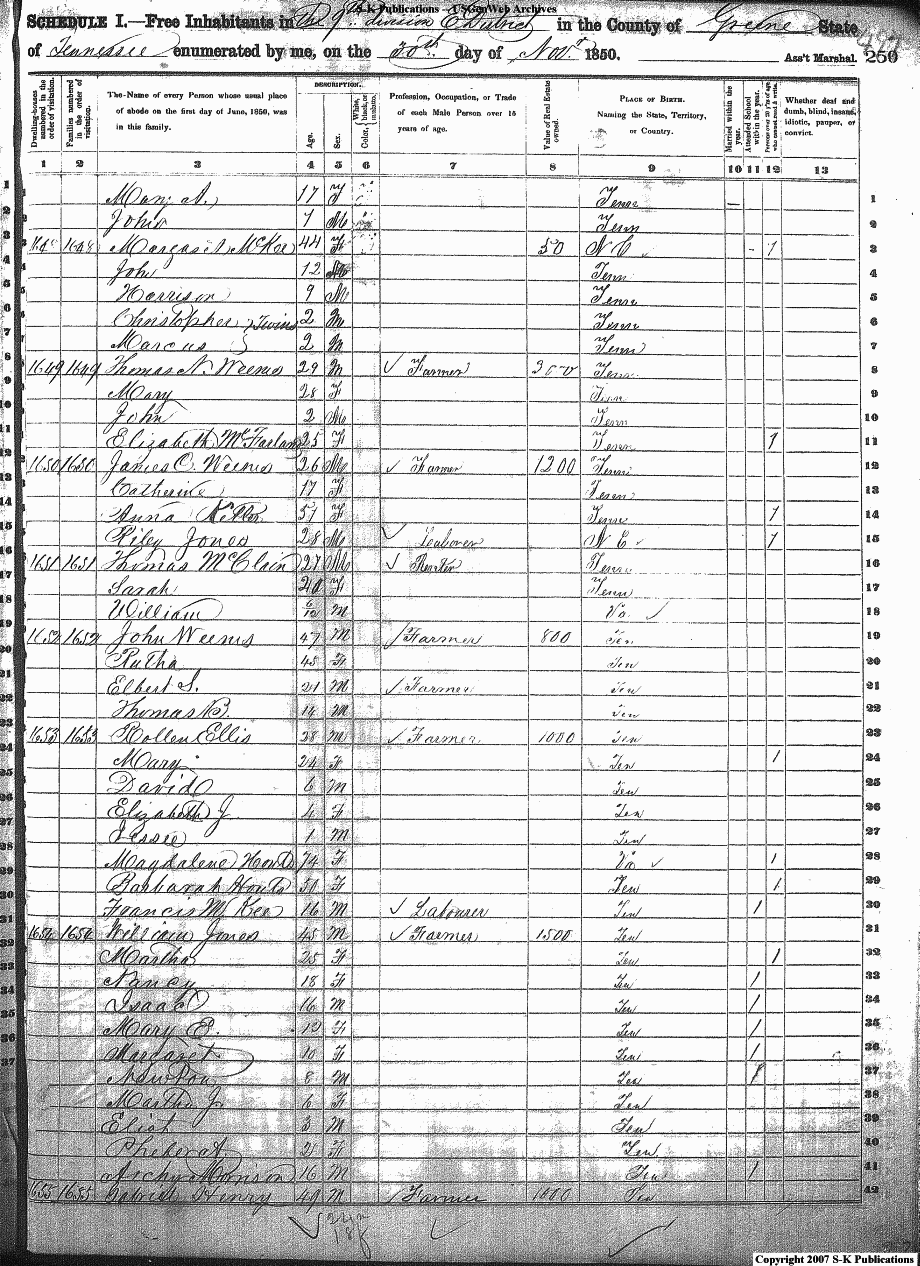 S-K Publications USGenWeb Archives
SCHEDULE I.—Free Inhabitants in The 9th division E District in the County of Greene State
of Tennessee enumerated by me, on the 20th day of Novr 1850. Ass't Marshal. 250
Dwelling-houses numbered in the order of visitation. Families numbered in the order of visitation. The Name of every Person whose usual place of abode on the first day of June, 1850, was in this family. DESCRIPTION. Age. Sex. Color, White, black, or mulatto. Profession, Occupation, or Trade of each Male Person over 15 years of age. Value of Real Estate owned. PLACE OF BIRTH. Naming the State, Territory, or Country. Married within the year. Attended School within the year. Persons over 20 y'rs of age who cannot read & write. Whether deaf and dumb, blind, insane, idiotic, pauper, or convict.
1 2 3 4 5 6 7 8 9 10 11 12 13
1 Mary A. 17 F Tenn 1
2 John 7 M Tenn 2
3 1648 1648 Margaret McKee 44 F 50 N C 1 3
4 John 12 M Tenn 4
5 Harrison 9 M Tenn 5
6 Christopher } Twins 2 M Tenn 6
7 Marcus 2 M Tenn 7
8 1649 1649 Thomas N. Weems 29 M ✓ Farmer 300 Tenn 8
9 Mary 28 F Tenn 9
10 John 2 M Tenn 10
11 Elizabeth McFarland 25 F Tenn 1 11
12 1650 1650 James C. Weems 26 M ✓ Farmer 1200 Tenn 12
13 Catherine 17 F Tenn 13
14 Anna 51 F Tenn 1 14
15 Riley Jones 28 M ✓ Labourer N C 1 15
16 1651 1651 Thomas McClain 27 M ✓ Renter Tenn 16
17 Sarah 20 F Tenn 17
18 William M Va ✓ 18
19 1652 1652 John Weems 47 M ✓ Farmer 800 Ten 19
20 Rutha 45 F Ten 20
21 Elbert S. 21 M ✓ Farmer Ten 21
22 Thomas B. 14 M Ten 22
23 1653 1653 Rollen Ellis 38 M ✓ Farmer 1000 Ten 23
24 Mary 24 F Ten 1 24
25 David 6 M Ten 25
26 Elizabeth J. 4 F Ten 26
27 Jessee 1 M Ten 27
28 Magdalene Houts 74 F Va ✓ 1 28
29 Barbarah Houts 50 F Ten 1 29
30 Francis McKee 16 M ✓ Labourer Ten 1 30
31 1654 1654 William Jones 45 M ✓ Farmer 1500 Ten 31
32 Martha 25 F Ten 1 32
33 Nancy 18 F Ten 1 33
34 Isaac 16 M Ten 1 34
35 Mary E. 12 F Ten 1 35
36 Margaret 10 F Ten 1 36
37 Newton 8 M Ten 1 37
Martha J. 6 F Ten 38
Eliah 3 M Ten 39
2 F Ten 40
Archy Morrison 16 M Ten 1 41
1655 1655 Gabriel Henry 49 M ✓ Farmer 1000 Ten 42
Copyright 2007 S-K Publications